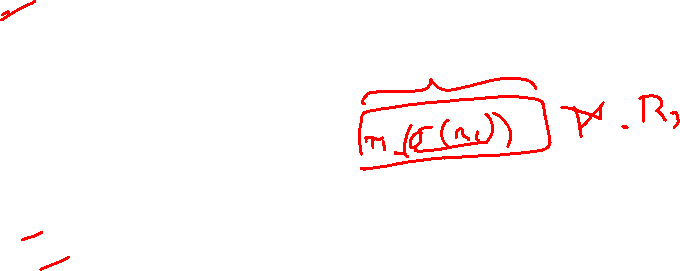 π (σ (R₁)) ⋈ . R₃